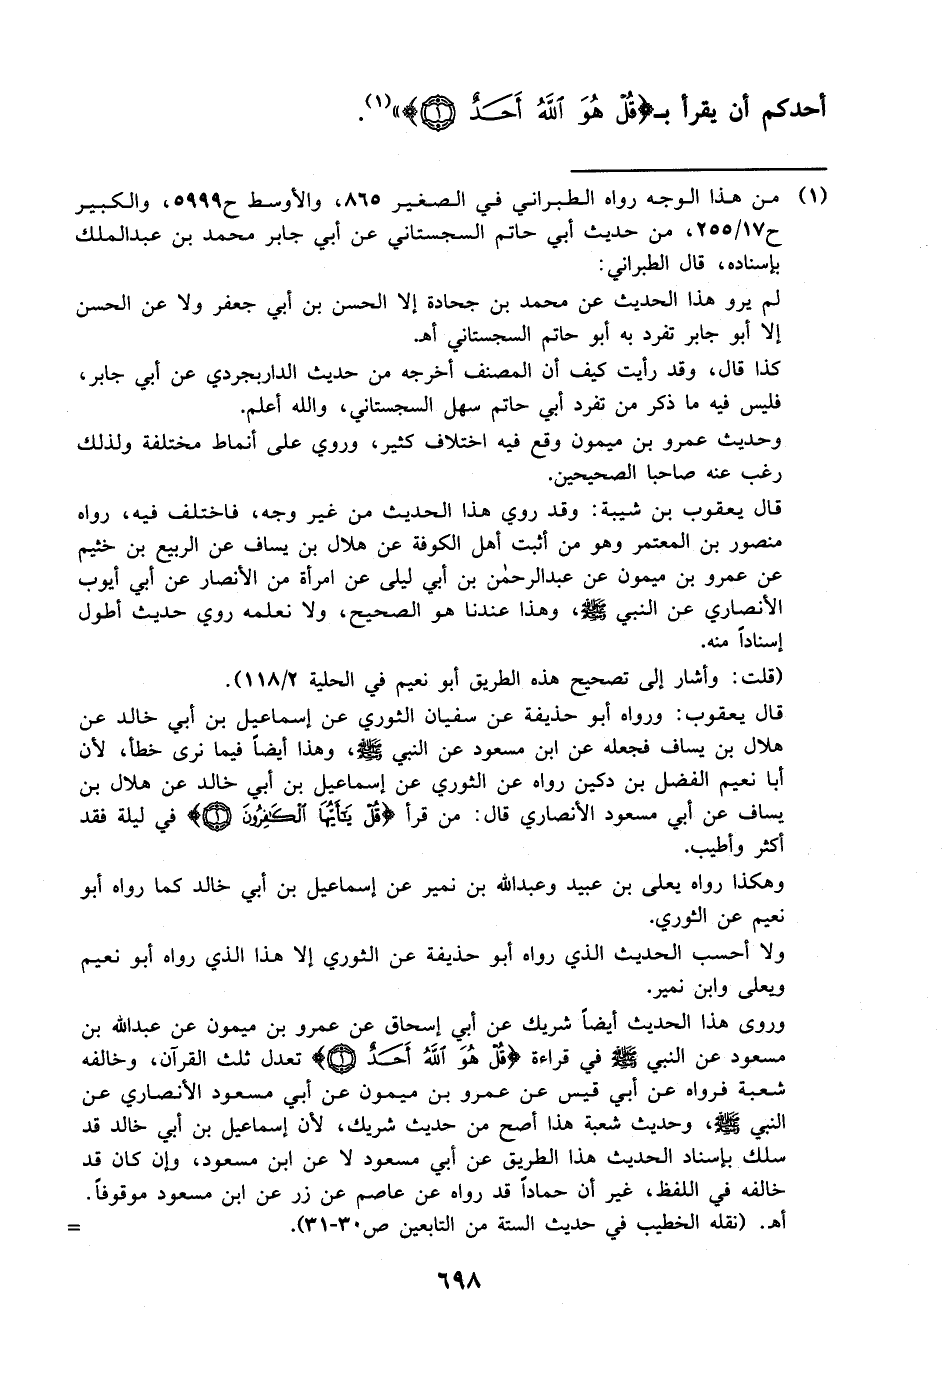 أحدكم أن يقرأ بـ﴿قُلْ هُوَ ٱللَّهُ أَحَدٌ ۝١﴾»(١).
(١) من هذا الوجه رواه الطبراني في الصغير ٨٦٥، والأوسط ح٥٩٩٩، والكبير
ح٢٥٥/١٧، من حديث أبي حاتم السجستاني عن أبي جابر محمد بن عبدالملك
بإسناده، قال الطبراني:
لم يرو هذا الحديث عن محمد بن جحادة إلا الحسن بن أبي جعفر ولا عن الحسن
إلا أبو جابر تفرد به أبو حاتم السجستاني أهـ.
كذا قال، وقد رأيت كيف أن المصنف أخرجه من حديث الداربجردي عن أبي جابر،
فليس فيه ما ذكر من تفرد أبي حاتم سهل السجستاني، والله أعلم.
وحديث عمرو بن ميمون وقع فيه اختلاف كثير، وروي على أنماط مختلفة ولذلك
رغب عنه صاحبا الصحيحين.
قال يعقوب بن شيبة: وقد روي هذا الحديث من غير وجه، فاختلف فيه، رواه
منصور بن المعتمر وهو من أثبت أهل الكوفة عن هلال بن يساف عن الربيع بن خثيم
عن عمرو بن ميمون عن عبدالرحمٰن بن أبي ليلى عن امرأة من الأنصار عن أبي أيوب
الأنصاري عن النبي ﷺ، وهذا عندنا هو الصحيح، ولا نعلمه روي حديث أطول
إسناداً منه.
(قلت: وأشار إلى تصحيح هذه الطريق أبو نعيم في الحلية ١١٨/٢).
قال يعقوب: ورواه أبو حذيفة عن سفيان الثوري عن إسماعيل بن أبي خالد عن
هلال بن يساف فجعله عن ابن مسعود عن النبي ﷺ، وهذا أيضاً فيما نرى خطأ، لأن
أبا نعيم الفضل بن دكين رواه عن الثوري عن إسماعيل بن أبي خالد عن هلال بن
يساف عن أبي مسعود الأنصاري قال: من قرأ ﴿قُلْ يَـٰٓأَيُّهَا ٱلْكَـٰفِرُونَ ۝١﴾ في ليلة فقد
أكثر وأطيب.
وهكذا رواه يعلى بن عبيد وعبدالله بن نمير عن إسماعيل بن أبي خالد كما رواه أبو
نعيم عن الثوري.
ولا أحسب الحديث الذي رواه أبو حذيفة عن الثوري إلا هذا الذي رواه أبو نعيم
ويعلى وابن نمير.
وروى هذا الحديث أيضاً شريك عن أبي إسحاق عن عمرو بن ميمون عن عبدالله بن
مسعود عن النبي ﷺ في قراءة ﴿قُلْ هُوَ ٱللَّهُ أَحَدٌ ۝١﴾ تعدل ثلث القرآن، وخالفه
شعبة فرواه عن أبي قيس عن عمرو بن ميمون عن أبي مسعود الأنصاري عن
النبي ﷺ، وحديث شعبة هذا أصح من حديث شريك، لأن إسماعيل بن أبي خالد قد
سلك بإسناد الحديث هذا الطريق عن أبي مسعود لا عن ابن مسعود، وإن كان قد
خالفه في اللفظ، غير أن حماداً قد رواه عن عاصم عن زر عن ابن مسعود موقوفاً.
أهـ. (نقله الخطيب في حديث الستة من التابعين ص٣٠-٣١). =
٦٩٨